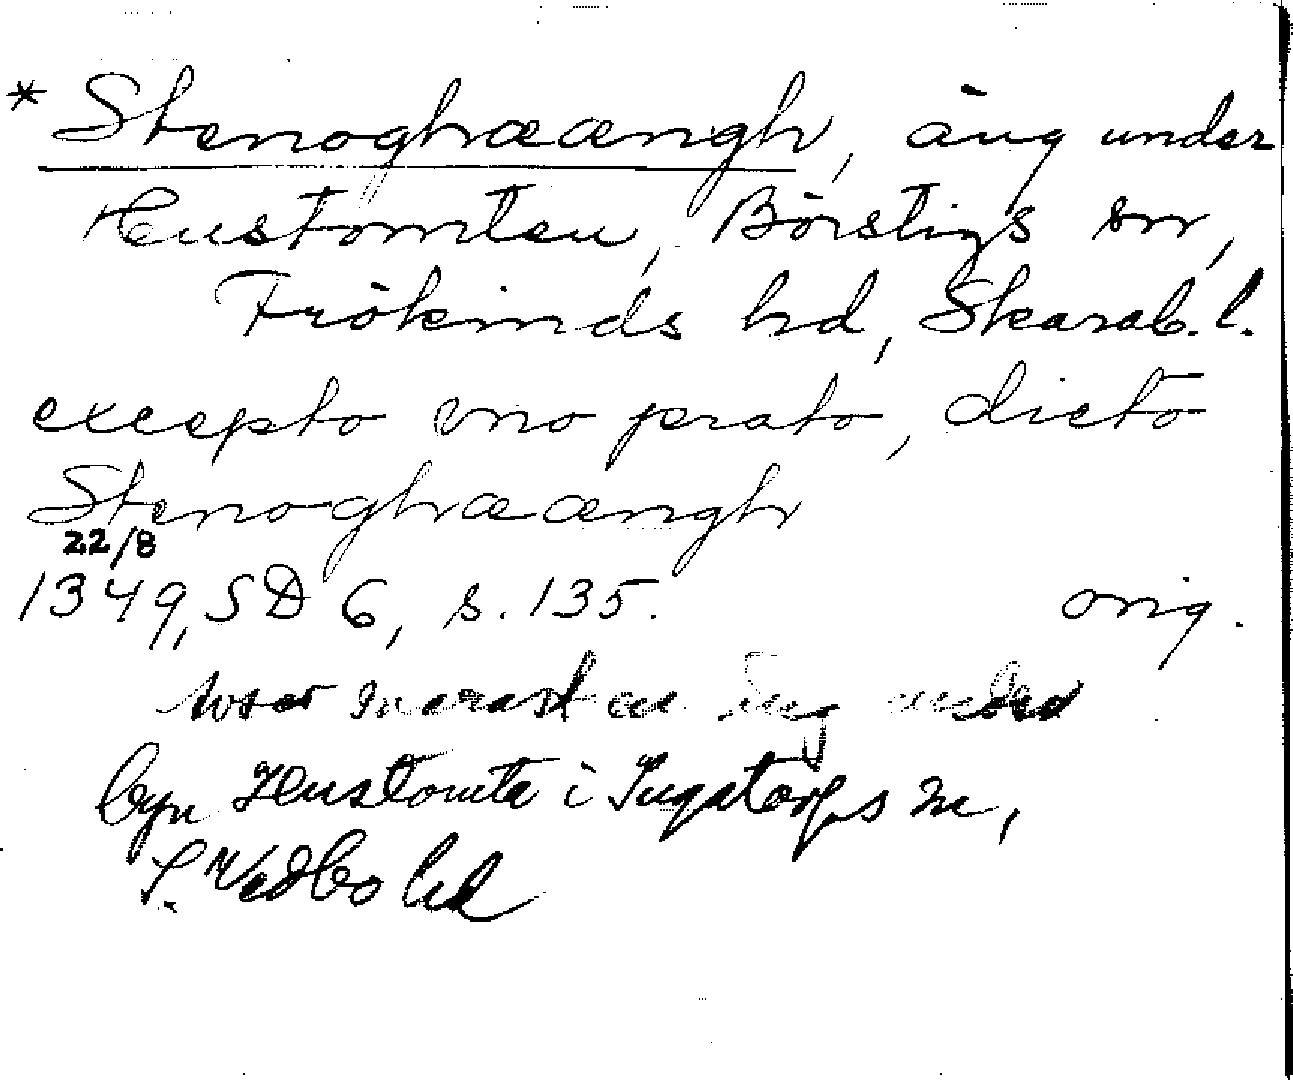 * Stenoghæængh, äng under
Hustomten, Börstigs sn,
Frökinds hd, Skarab. l.
excepto vno prato, dicto
Stenoghæængh
22/8
1349, SD 6, s. 135. orig.
snarast en äng under
byn Hustomta i Ingatorps sn,
S. Vedbo hd